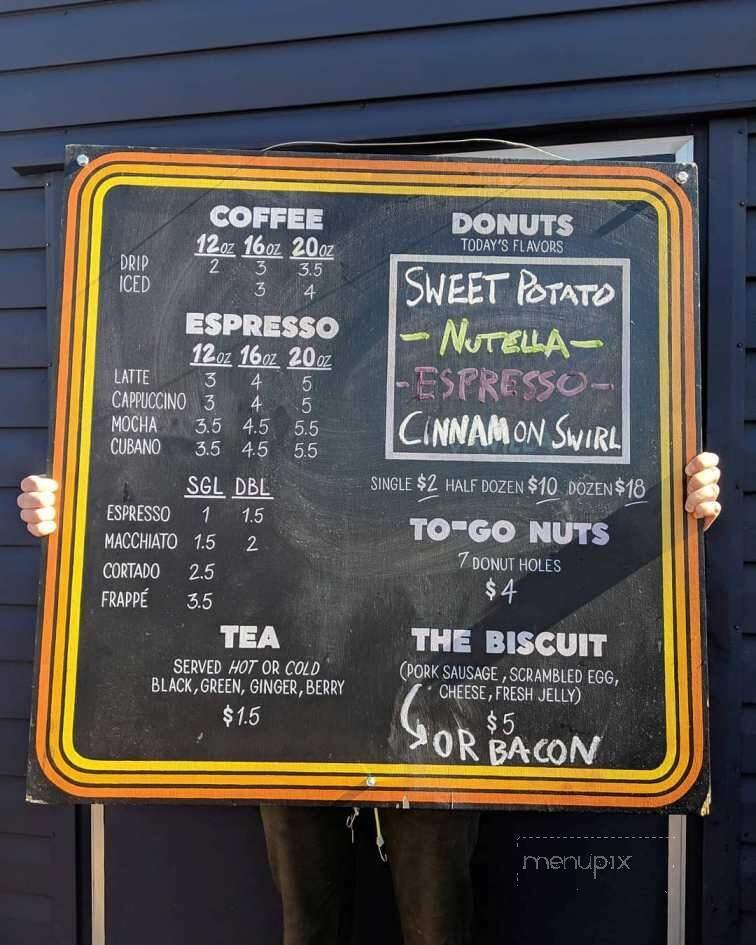 COFFEE
12oz 16oz 20oz
DRIP 2 3 3.5
ICED 3 4
ESPRESSO
12oz 16oz 20oz
LATTE 3 4 5
CAPPUCCINO 3 4 5
MOCHA 3.5 4.5 5.5
CUBANO 3.5 4.5 5.5
SGL DBL
ESPRESSO 1 1.5
MACCHIATO 1.5 2
CORTADO 2.5
FRAPPÉ 3.5
TEA
SERVED HOT OR COLD
BLACK, GREEN, GINGER, BERRY
$1.5
DONUTS
TODAY'S FLAVORS
SWEET POTATO
- NUTELLA -
- ESPRESSO -
CINNAMON SWIRL
SINGLE $2 HALF DOZEN $10 DOZEN $18
TO-GO NUTS
7 DONUT HOLES
$4
THE BISCUIT
(PORK SAUSAGE, SCRAMBLED EGG,
CHEESE, FRESH JELLY)
$5
OR BACON
menupix